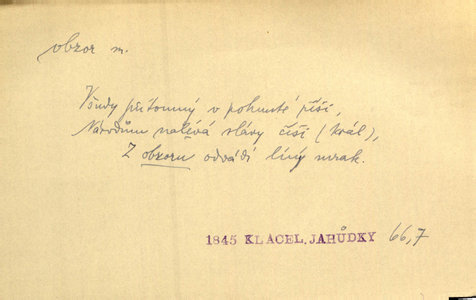 obzor m.
Všudy přítomný v pohnuté píši,
Národům nalévá slávy číši (král),
Z obzoru odvádí líný mrak.
1845 KLACEL, JAHŮDKY 66,7